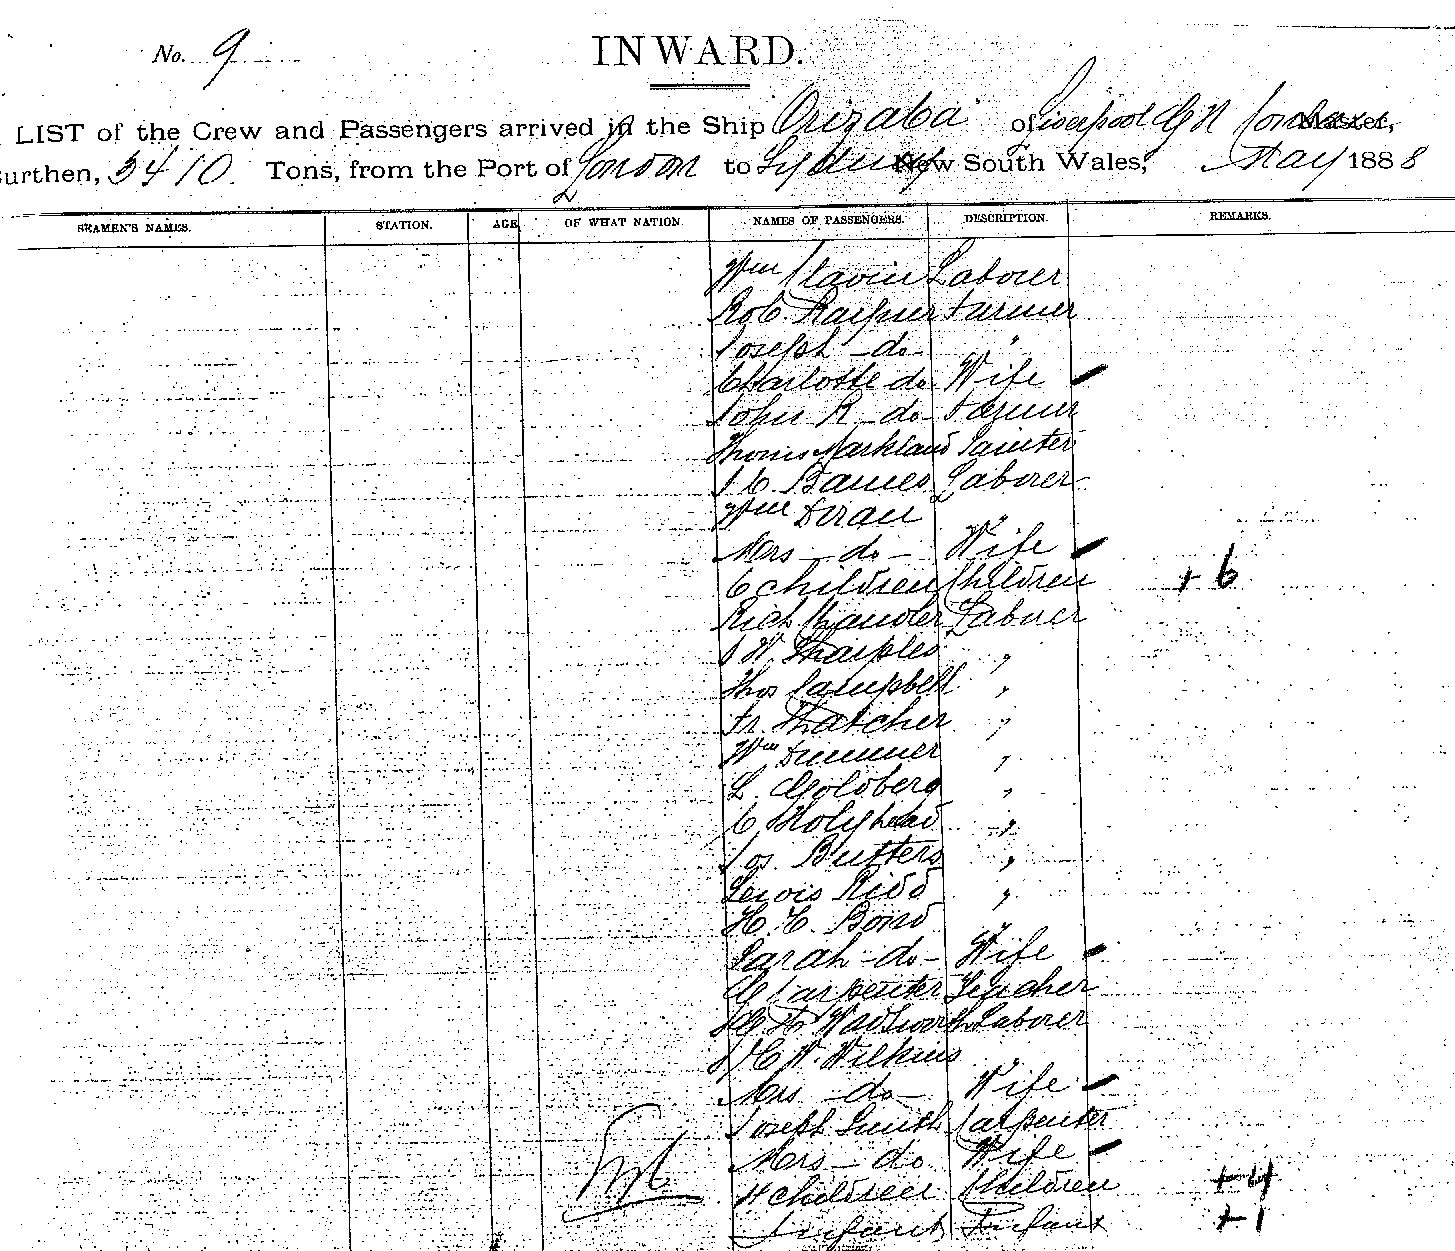 No. 9
INWARD.
LIST of the Crew and Passengers arrived in the Ship Orizaba of Liverpool G N Master,
urthen, 5410 Tons, from the Port of London to Sydney New South Wales, May 1888
SEAMEN'S NAMES. STATION. AGE OF WHAT NATION. NAMES OF PASSENGERS. DESCRIPTION. REMARKS.
Wm Slavin Laborer
Rob. Farmer
Joseph do "
Charlotte do Wife
John R do Farmer
Thomas Markland Painter
J C Barnes Laborer
Wm Doran "
Mrs do Wife
6 children Children + 6
Rich Chandler Laborer
J W Sharples "
Thos Campbell "
Fr. Thatcher "
Wm Dummer "
L. Goldberg "
C Holyhead "
Jos Butters "
Lewis Ridd "
H. C. Bond "
Sarah do Wife
G Carpenter Teacher
H Wadsworth Laborer
J C W. Wilkins "
Mrs do Wife
Joseph Smith Carpenter
Mrs do Wife
4 children Children +4
1 infant Infant +1